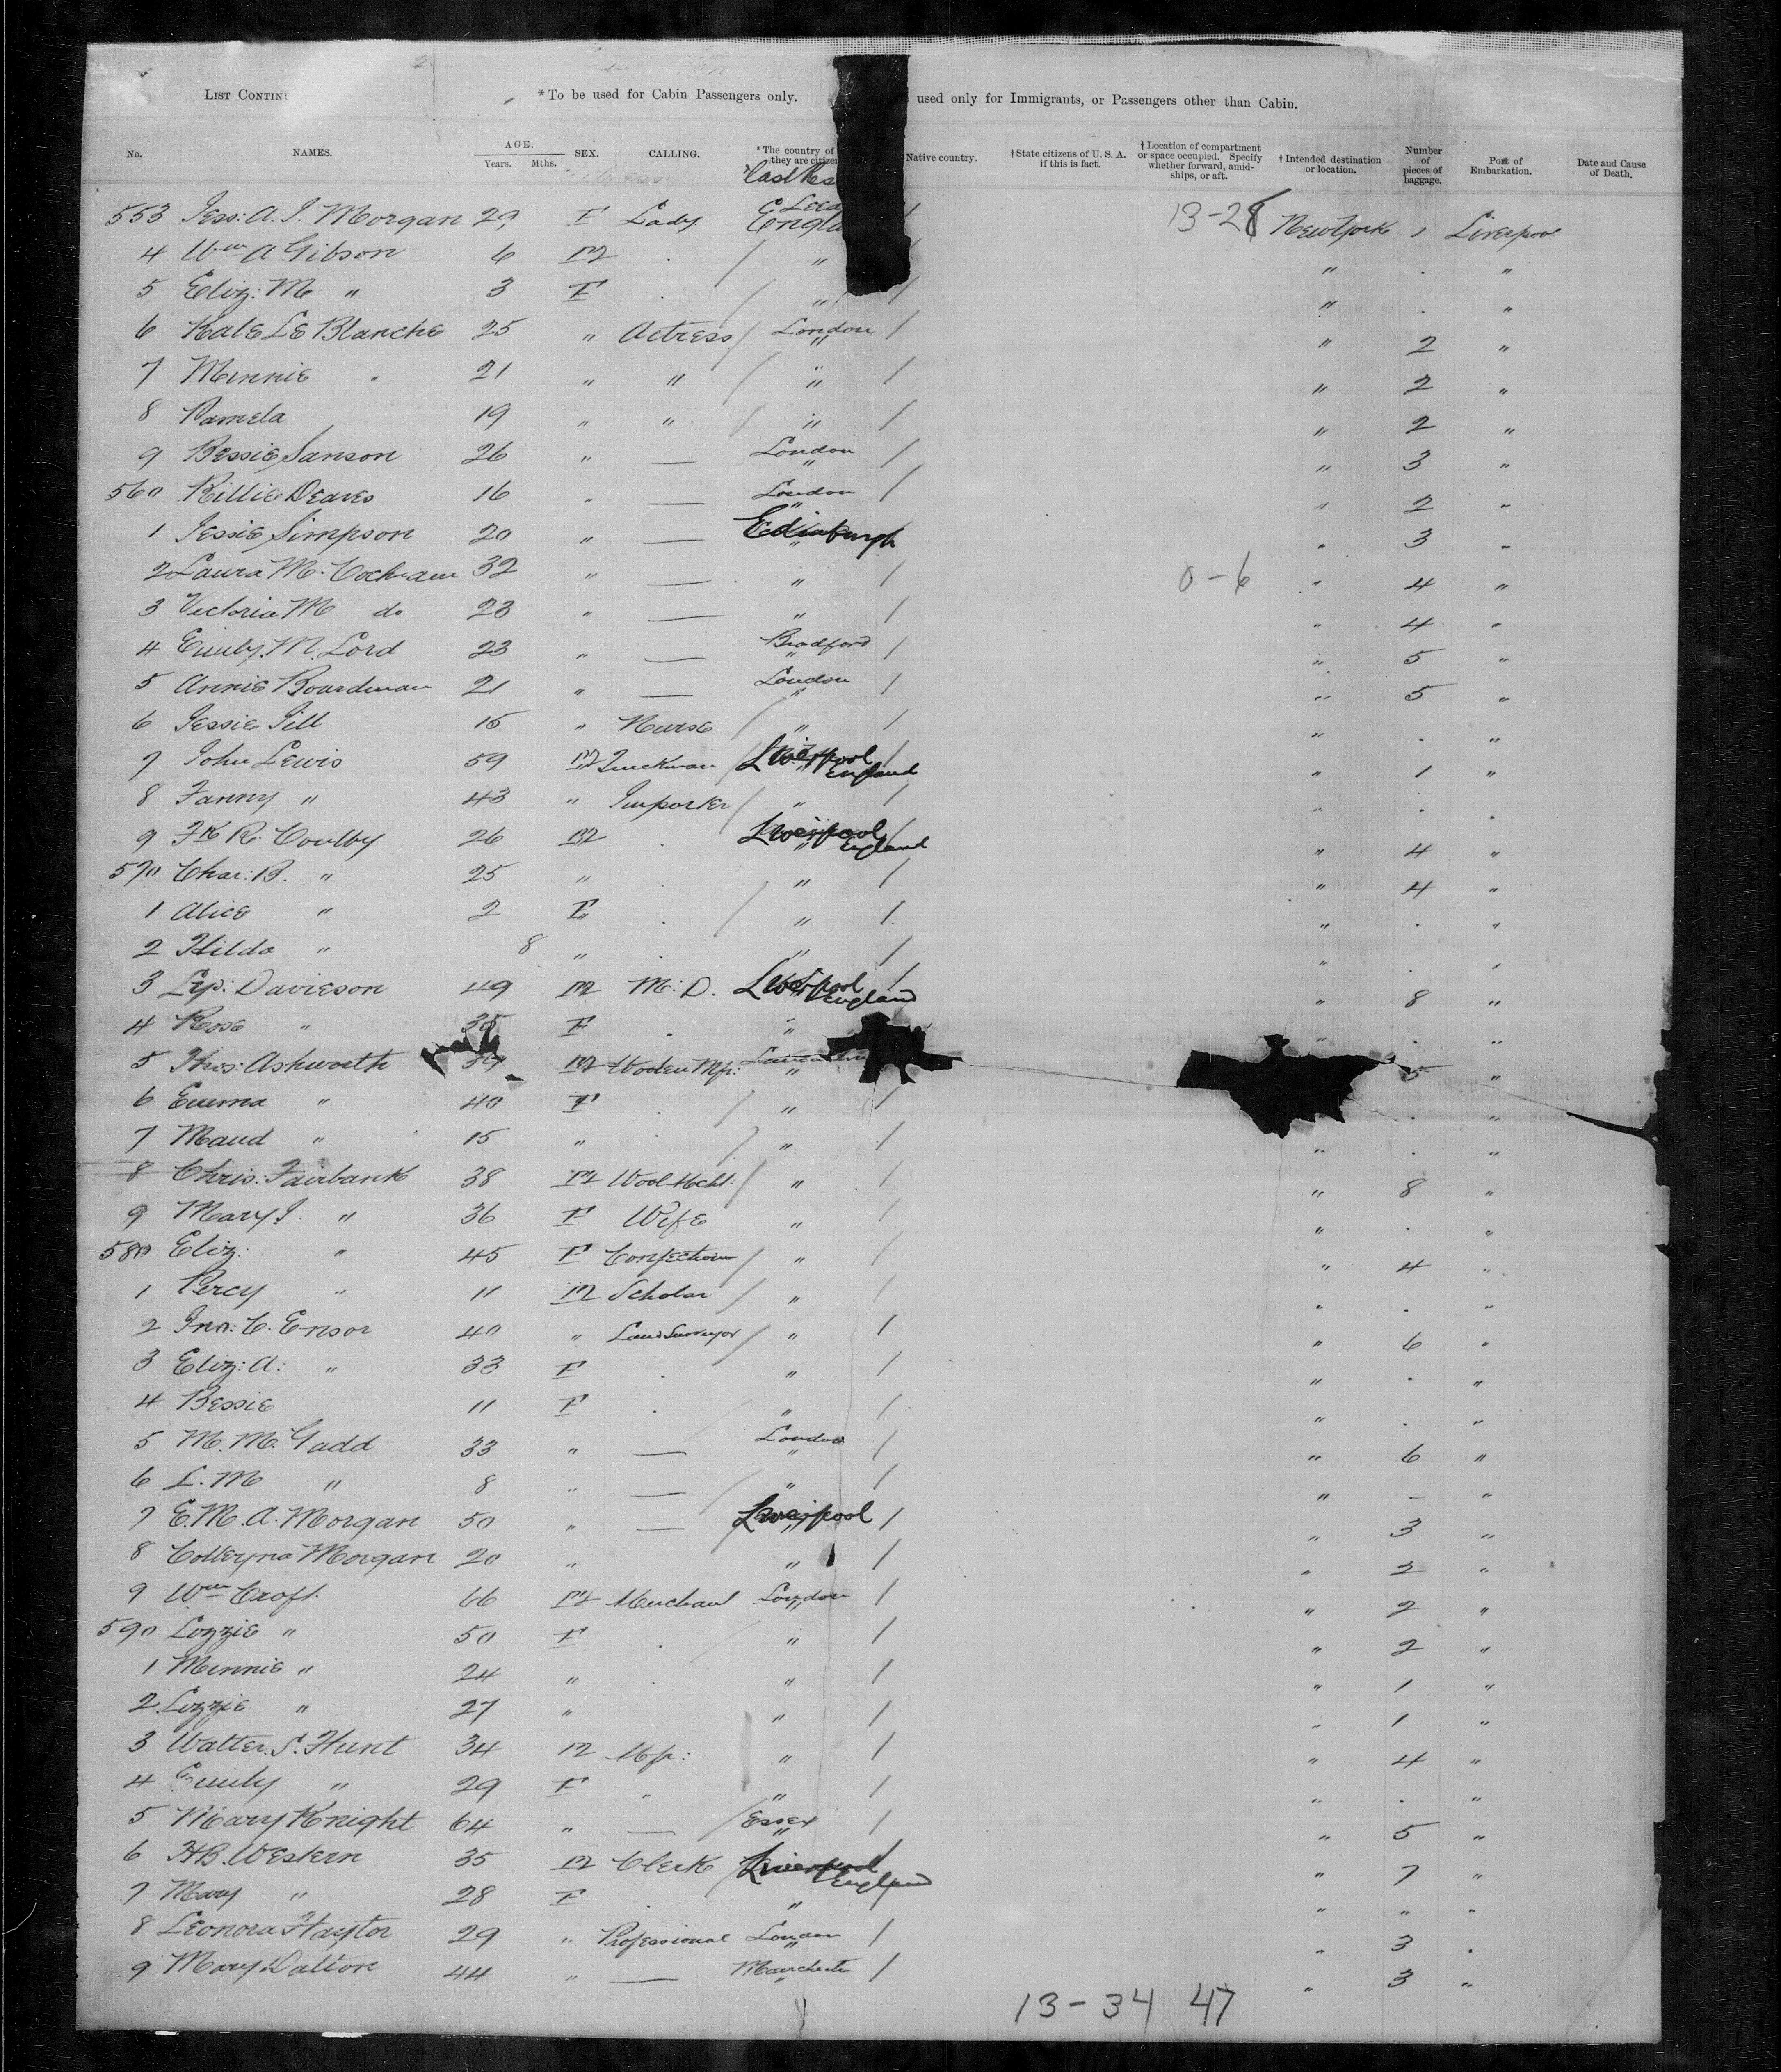 LIST CONTINU
*To be used for Cabin Passengers only.
used only for Immigrants, or Passengers other than Cabin.
No. NAMES. AGE. Years. Mths. SEX. CALLING. *The country of they are citizen Native country. †State citizens of U. S. A. if this is fact. †Location of compartment or space occupied. Specify whether forward, amidships, or aft. †Intended destination or location. Number of pieces of baggage. Port of Embarkation. Date and Cause of Death.
Last Res
553 Jess: A. J. Morgan 29 F Lady Engla / 13-28 New York 1 Liverpool
4 Wm A Gibson 6 M . / " / " . "
5 Eliz: M " 3 F . / " / " . "
6 Kate Le Blanche 25 " Actress / London " / " 2 "
7 Minnie " 21 " " / " / " 2 "
8 Pamela 19 " " / " / " 2 "
9 Bessie Sanson 26 " — London " / " 3 "
560 Deaves 16 " — London " / " 2 "
1 Jessie Simpson 20 " — Edinburgh " 3 "
2 Laura M. Cochrane 32 " — " / 0-6 " 4 "
3 Victoria M do 23 " — " / " 4 "
4 Emily M. Lord 23 " — Bradford " / " 5 "
5 Annie Boardman 21 " — London " / " 5 "
6 Jessie 15 " Nurse / " / " . "
7 John Lewis 59 M / Liverpool England / " 1 "
8 Fanny " 43 " Importer / " / " . "
9 Fk R. Coulby 26 M . Liverpool England / " 4 "
570 Char: B. " 25 " . / " / " 4 "
1 Alice " 2 F . / " / " . "
2 Hilda " 8 " . " / " . "
3 Davieson 49 M M. D. Liverpool England / " 8 "
4 Rose " 35 F . " " . "
5 Thos: Ashworth 54 M Woolen Mfr: " 5 "
6 Emma " 40 F . / " / . "
7 Maud " 15 " . / " / " . "
8 Chris: Fairbank 38 M Wool Mcht: / " / " 8 "
9 Mary J. " 36 F Wife " / " . "
580 Eliz: " 45 F Confection / " / " 4 "
1 Percy " 11 M Scholar / " / " . "
2 Jno: C. Ensor 40 " Land Surveyor / " / " 6 "
3 Eliz: A: " 33 F . " / " . "
4 Bessie 11 F . / " / " . "
5 M. M. Gadd 33 " — London " / " 6 "
6 L. M " 8 " — / " / " – "
7 E. M. A. Morgan 50 " — / Liverpool / " 3 "
8 Morgan 20 " " / " 2 "
9 Wm Croft 66 M Merchant London / " 2 "
590 Lizzie " 50 F . / " / " 2 "
1 Minnie " 24 " . " / " 1 "
2 Lizzie " 27 " " / " 1 "
3 Walter S. Hunt 34 M Mfr: " / " 4 "
4 Emily " 29 F " " / " . "
5 Mary Knight 64 " — / Essex " / " 5 "
6 H B. Western 35 M Clerk / Liverpool England / " 7 "
7 Mary " 28 F . " / " " "
8 Leonora Haytor 29 " Professional London " / " 3 "
9 Mary Dalton 44 " — Manchester " / " 3 "
13-34 47